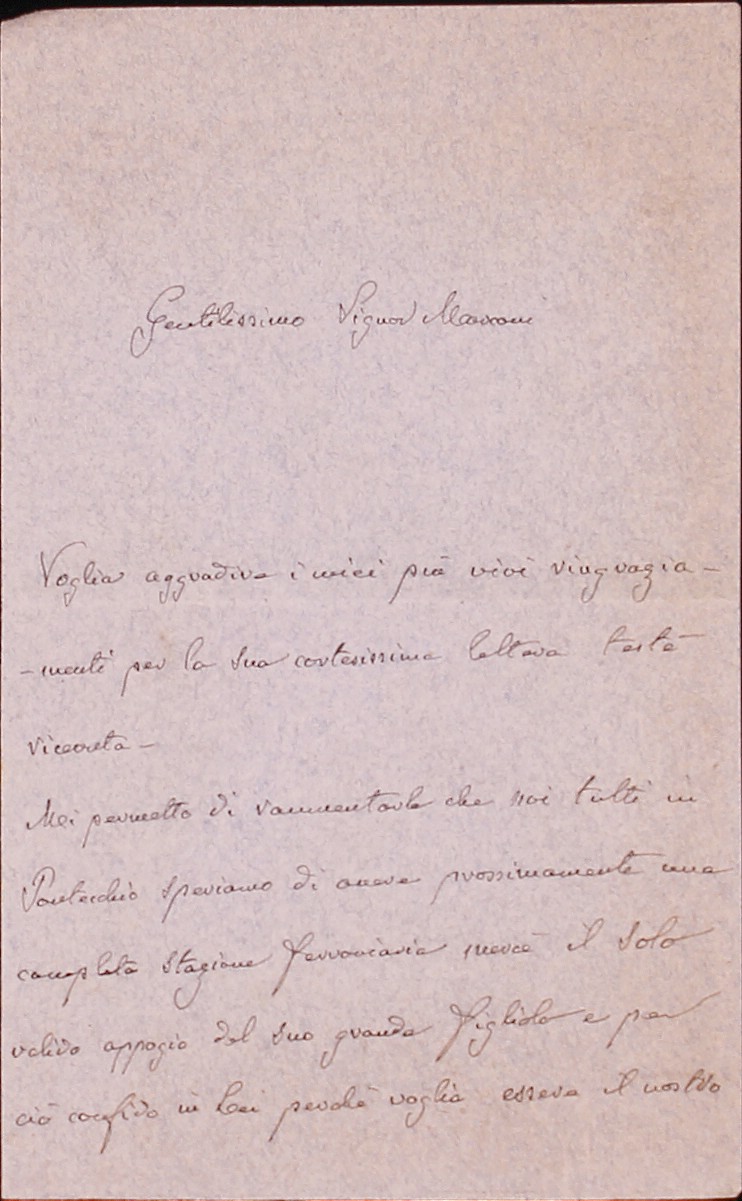 Gentilissimo Signor Marconi
Voglia aggradire i miei più vivi ringrazia-
-menti per la sua cortesissima lettera testè
ricevuta -
Mi permetto di rammentarle che noi tutti in
Pontecchio speriamo di avere prossimamente una
completa stazione ferroviaria mercè il solo
valido appogio del suo grande figliolo e per
ciò confido in Lei perchè voglia essere il nostro